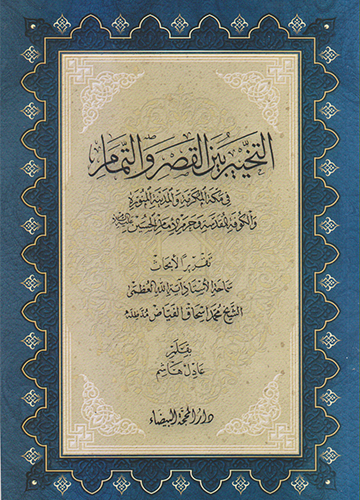 التخيير بين القصر والتمام
في مكة المكرمة والمدينة المنورة
والكوفة المقدسة وحرم الإمام الحسين عليه السلام
تقريراً لأبحاث
سماحة الأستاذ آية الله العظمى
الشيخ محمد إسحاق الفياض مد ظله
بقلم
عادل هاشم
دار المحجة البيضاء